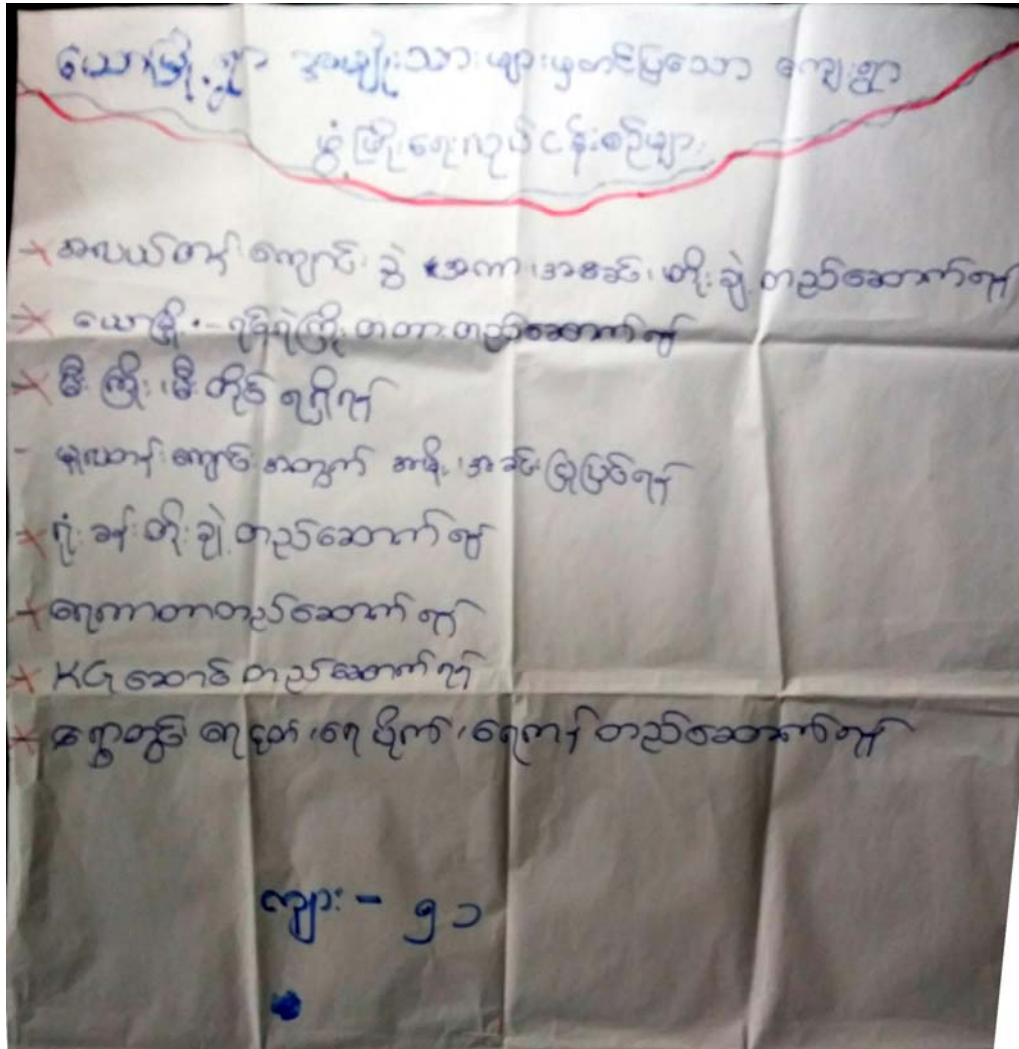 ယောမြို့ရွာ အမျိုးသားများမှတင်ပြသော ကျေးရွာ
ဖွံ့ဖြိုးရေးလုပ်ငန်းစဉ်များ
အလယ်တန်းကျောင်းခွဲ အကာ၊အခင်း တိုးချဲ့တည်ဆောက်ရန်
ယောမြို့ - တံတားတည်ဆောက်ရန်
မီးကြိုး၊မီးတိုင် ရရှိရန်
- မူလတန်းကျောင်းအတွက် အမိုး၊အခင်းပြုပြင်ရန်
ရုံးခန်းတိုးချဲ့တည်ဆောက်ရန်
ရေကာတာတည်ဆောက်ရန်
KG ဆောင်တည်ဆောက်ရန်
ရွာတွင်း ရေပိုက်၊ရေကန်တည်ဆောက်ရန်
ကျား - ၅၁